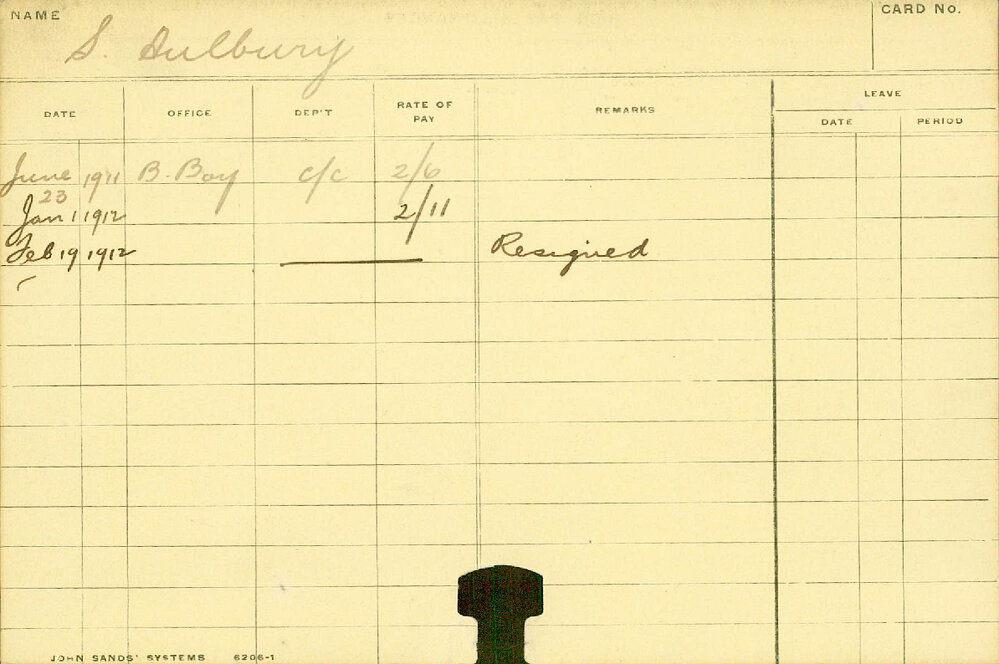 NAME
CARD NO.
S. Dulbury
LEAVE
DATE OFFICE DEP'T RATE OF PAY REMARKS DATE PERIOD
June 23 1911 B. Boy c/c 2/6
Jan 1 1912 2/11
Feb 19 1912 Resigned
JOHN SANDS' SYSTEMS 6206-1